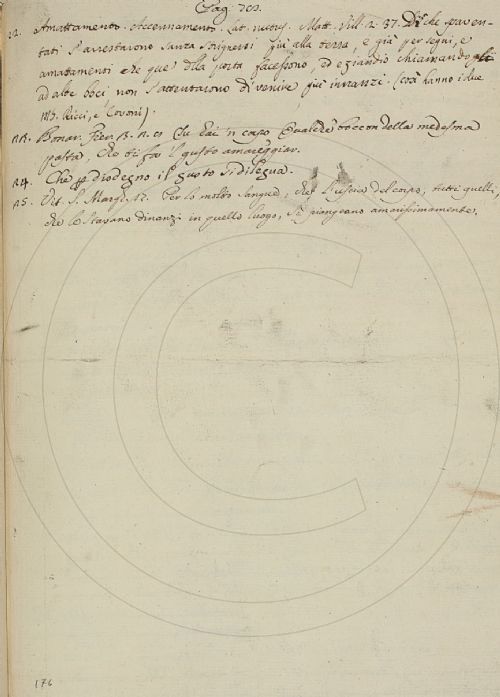 Pag. 701.
12. Amattamento. Accennamento. Lat. nutus. Matt. Vill. 2. 37. Di che paven-
tati s'arrestarono sanza strignersi più alla terra, e già per segni, e
amattamenti che que' della porta facessono, ed eziandio chiamandogli
ad alte boci non s'attentarono di venire più innanzi. (così hanno i due
MS. Ricci, e Covoni).
Bonar. Fier. 3. Che dai 'n capo Qualche boccon della medesma
pasta, Che ti fa 'l gusto amareggiar.
R4. Che 
R5. Vit. S. Margh. Per lo molto sangue, che l'usciva del corpo, tutti quelli,
che le stavano dinanzi in quello luogo, si piangeano amarissimamente.
176